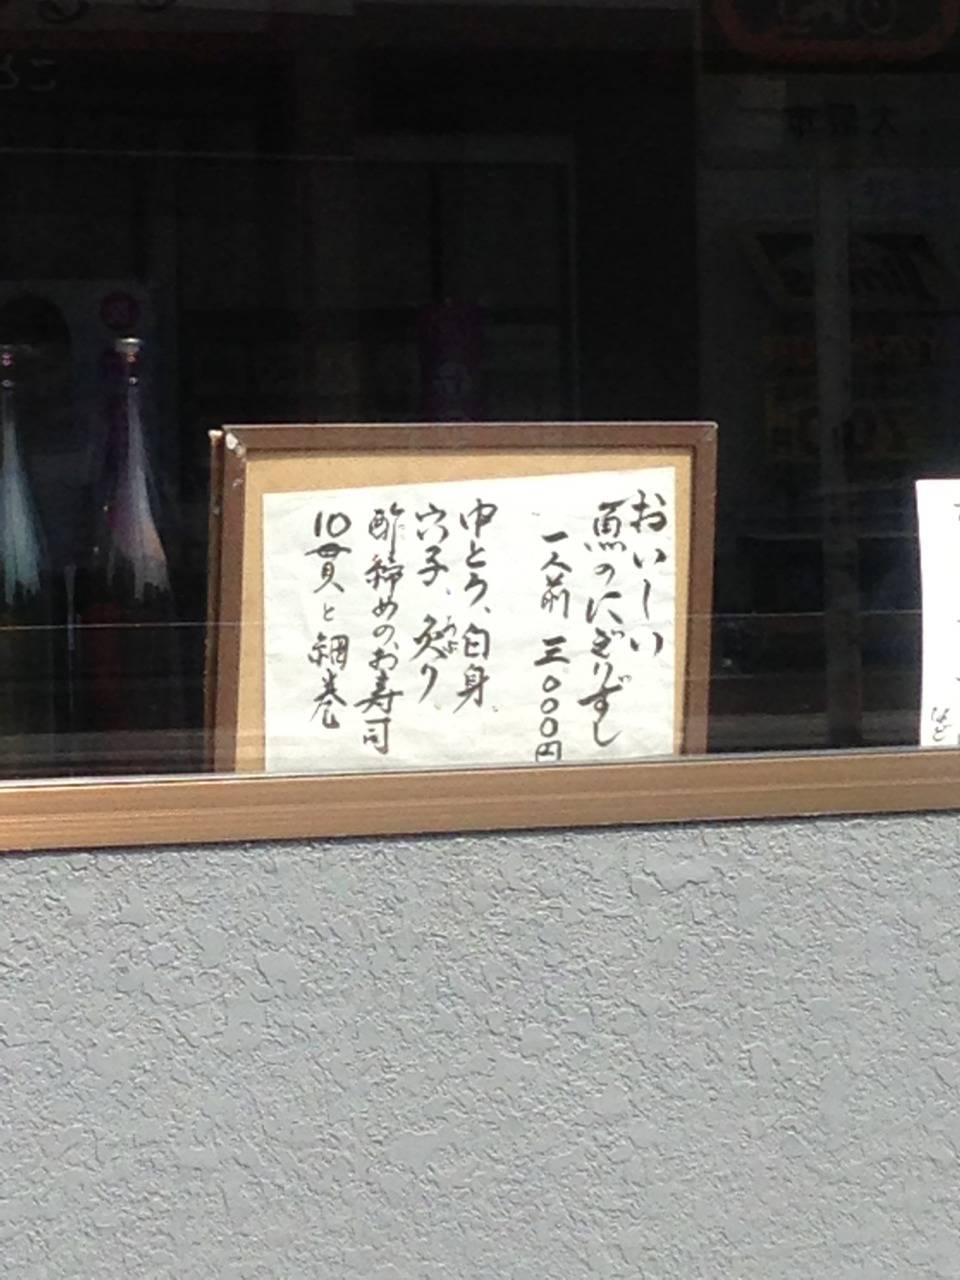 おいしい
魚のにぎりずし
一人前 三.000円
中とろ、白身、
穴子、炙り
酢締めのお寿司
10貫と細巻
など